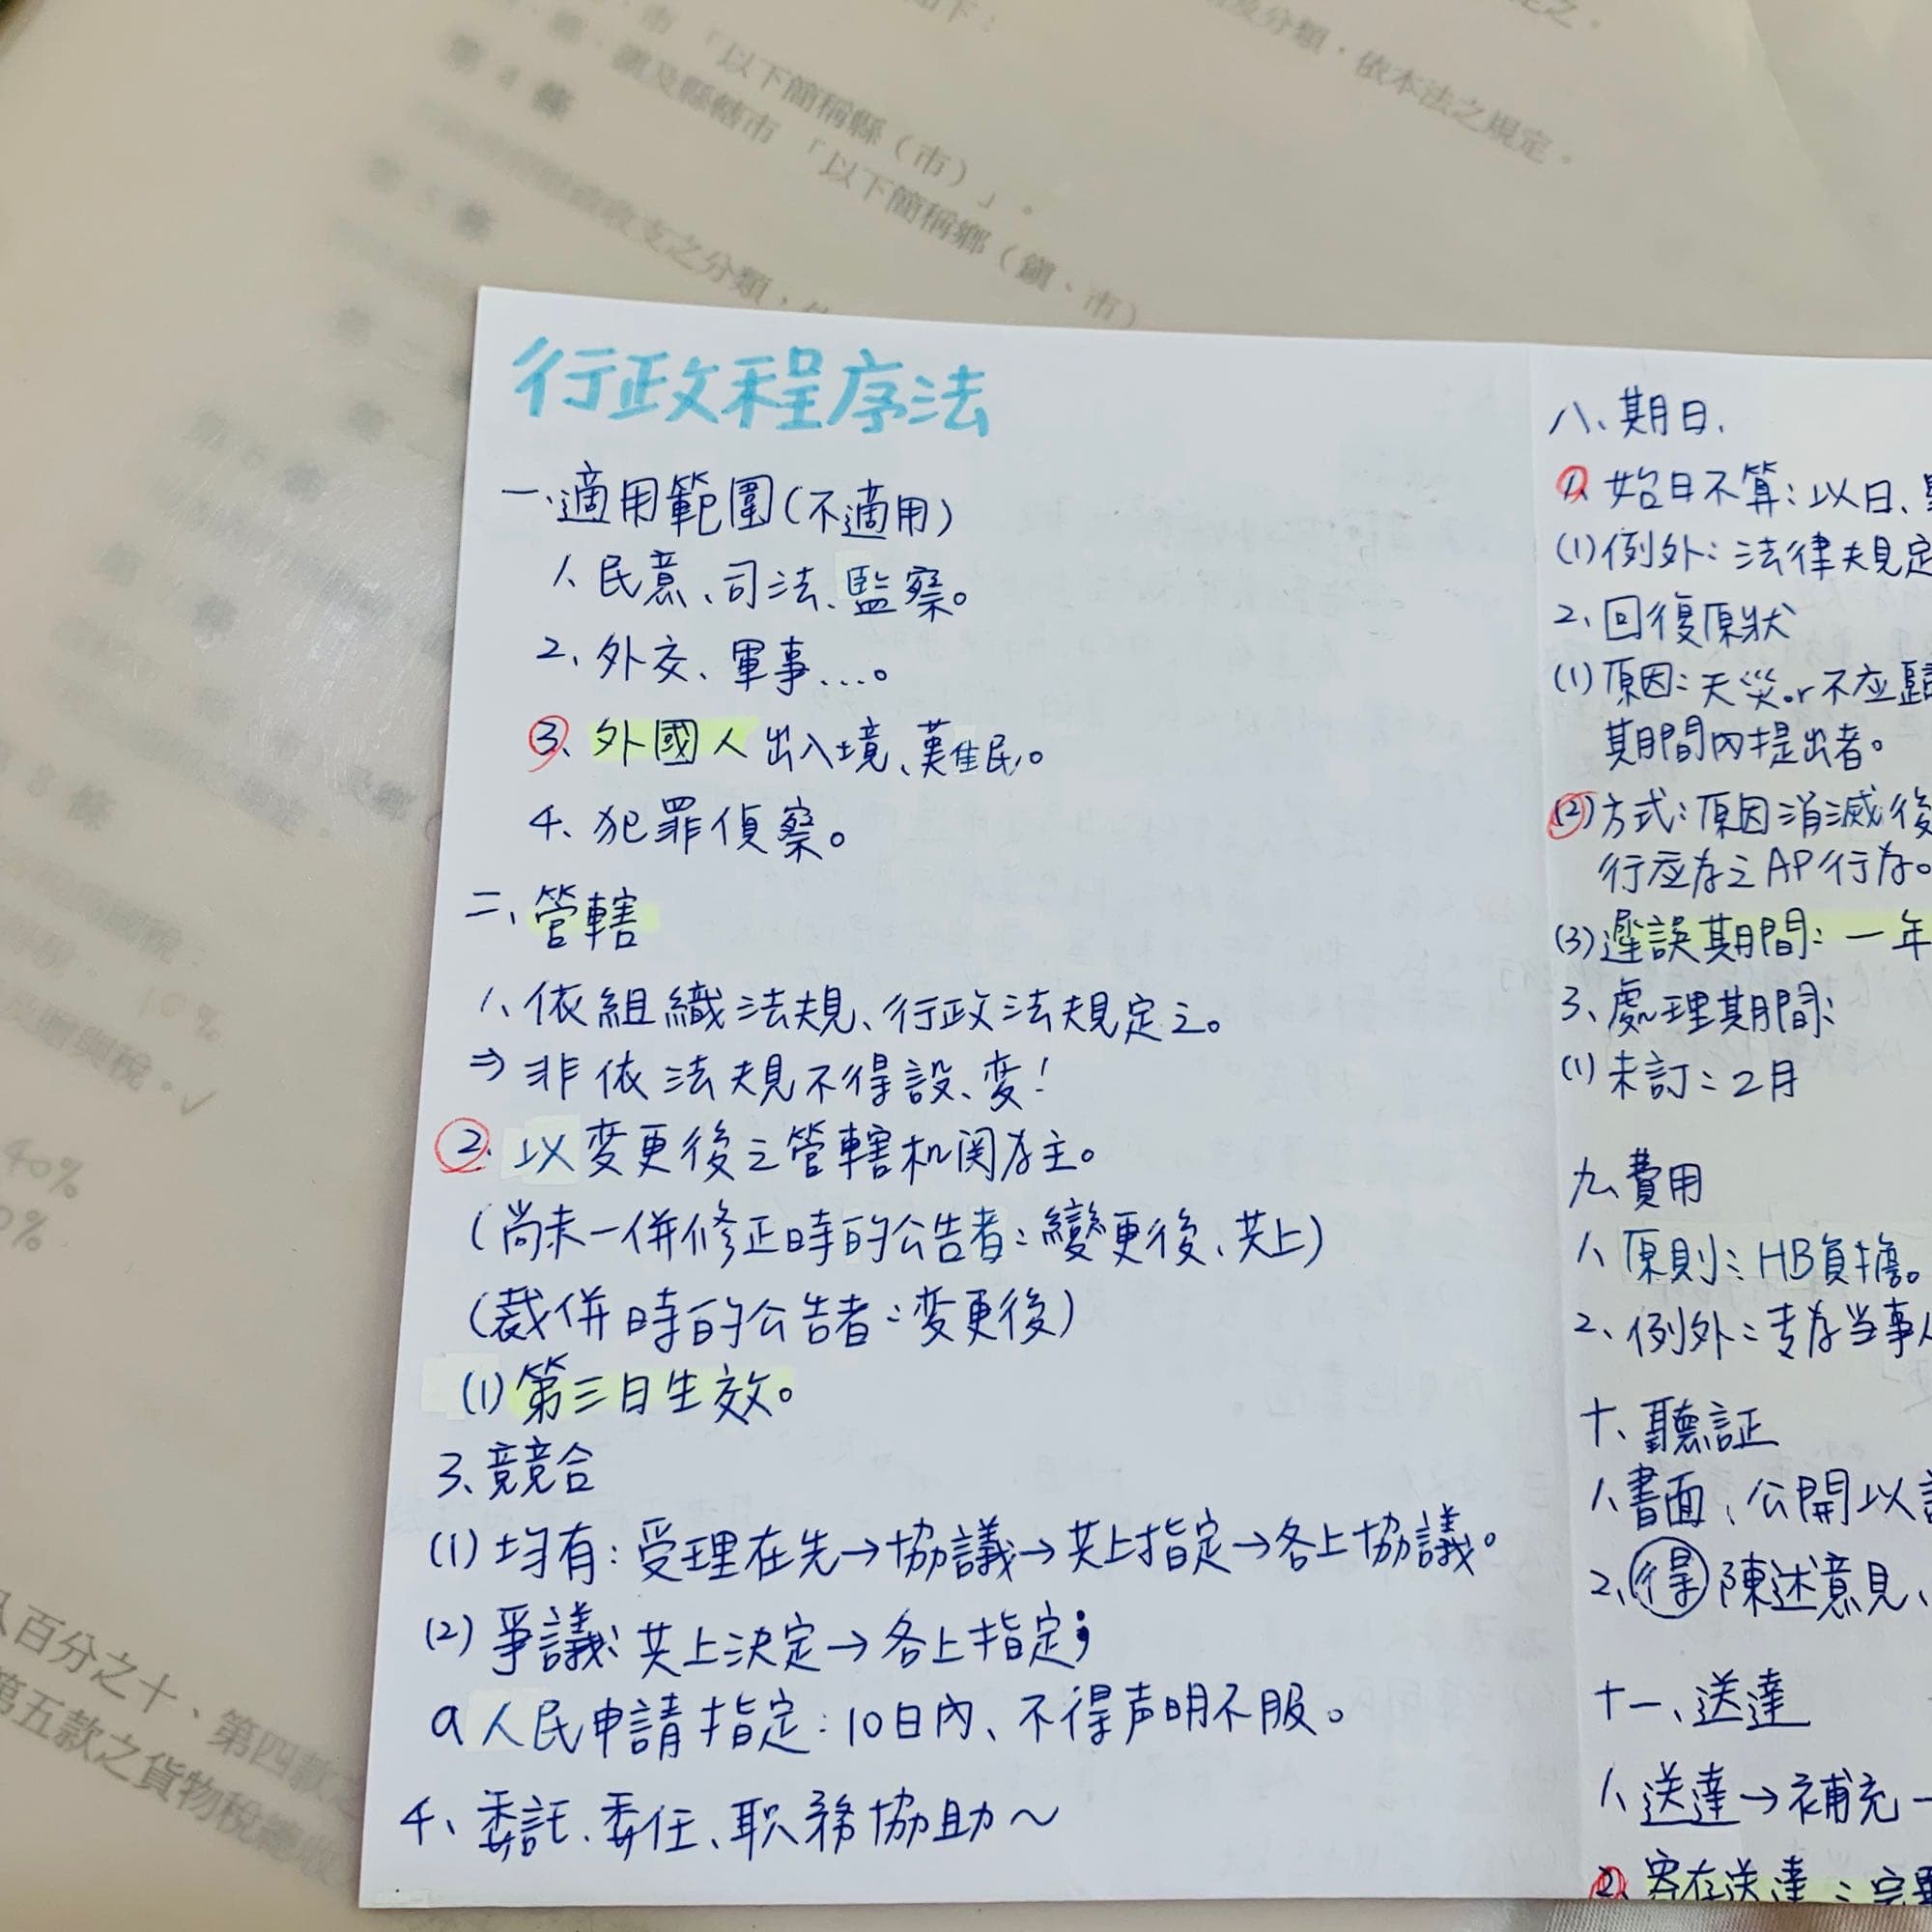 「以下簡稱縣（市）」。
鎮及縣轄市「以下簡稱鄉（鎮、市）
及分類，依本法之規定。
第4條
收支之分類，
行政程序法
一、適用範圍(不適用)
1、民意、司法、監察。
2、外交、軍事…。
3、外國人出入境、難民。
4、犯罪偵察。
二、管轄
1、依組織法規、行政法規定之。
⇒非依法規不得設、変!
2、以変更後之管轄机関為主。
(尚未一併修正時的公告者:變更後、共上)
(裁併時的公告者:変更後)
(1)第三日生效。
3、競合
(1)均有:受理在先→協議→共上指定→各上協議。
(2)爭議:共上決定→各上指定;
a 人民申請指定:10日內、不得声明不服。
4、委託、委任、职務協助~
八、期日、
1、始日不算:以日、
(1)例外:法律規定
2、回復原狀
(1)原因:天災or不应歸
期間內提出者。
(2)方式:原因消滅後
行应為之AP行為。
(3)遲誤期間:一年
3、處理期間:
(1)未訂:2月
九、費用
1、原則:HB負擔。
2、例外:专為当事人
十、聽証
1、書面、公開以言
2、得陳述意見、
十一、送達
1、送達→補充
2、寄存送達:完
與稅。✓
10%
40%
0%
百分之十、第四款
第五款之貨物稅總收